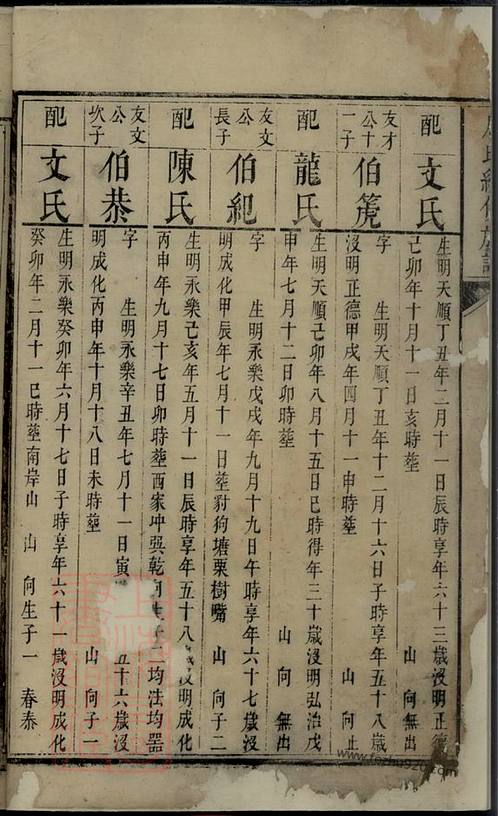 配
文氏
生明天順丁丑年二月十一日辰時享年六十三歲沒明正德
己卯年十月十一日亥時塟 山 向無出
友才公十一子
伯箎
字 生明天順丁丑年十二月十六日子時享年五十八歲
沒明正德甲戌年四月十一申時塟 山 向止
配
龍氏
生明天順己卯年八月十五日巳時得年三十歲沒明弘治戊
申年七月十二日卯時塟 山 向無出
友文公長子
伯紀
字 生明永樂戊戌年九月十九日午時享年六十七歲沒
明成化甲辰年七月十一日塟對狗塘栗樹嘴 山 向子二
配
陳氏
生明永樂己亥年五月十一日辰時享年五十八歲沒明成化
丙申年九月十七日卯時塟西家冲巽乾向生子二均法均器
友文公坎子
伯恭
字 生明永樂辛丑年七月十一日寅 五十六歲沒
明成化丙申年十月十八日未時塟 山 向子一
配
文氏
生明永樂癸卯年六月十七日子時享年六十一歲沒明成化
癸卯年二月十一巳時塟南岸山 山 向生子一 春泰